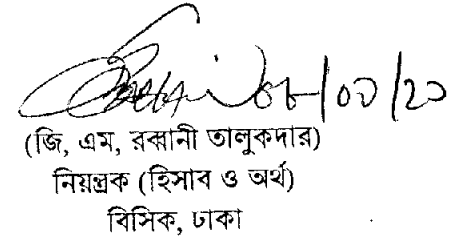 (জি, এম, রব্বানী তালুকদার)
নিয়ন্ত্রক (হিসাব ও অর্থ)
বিসিক, ঢাকা